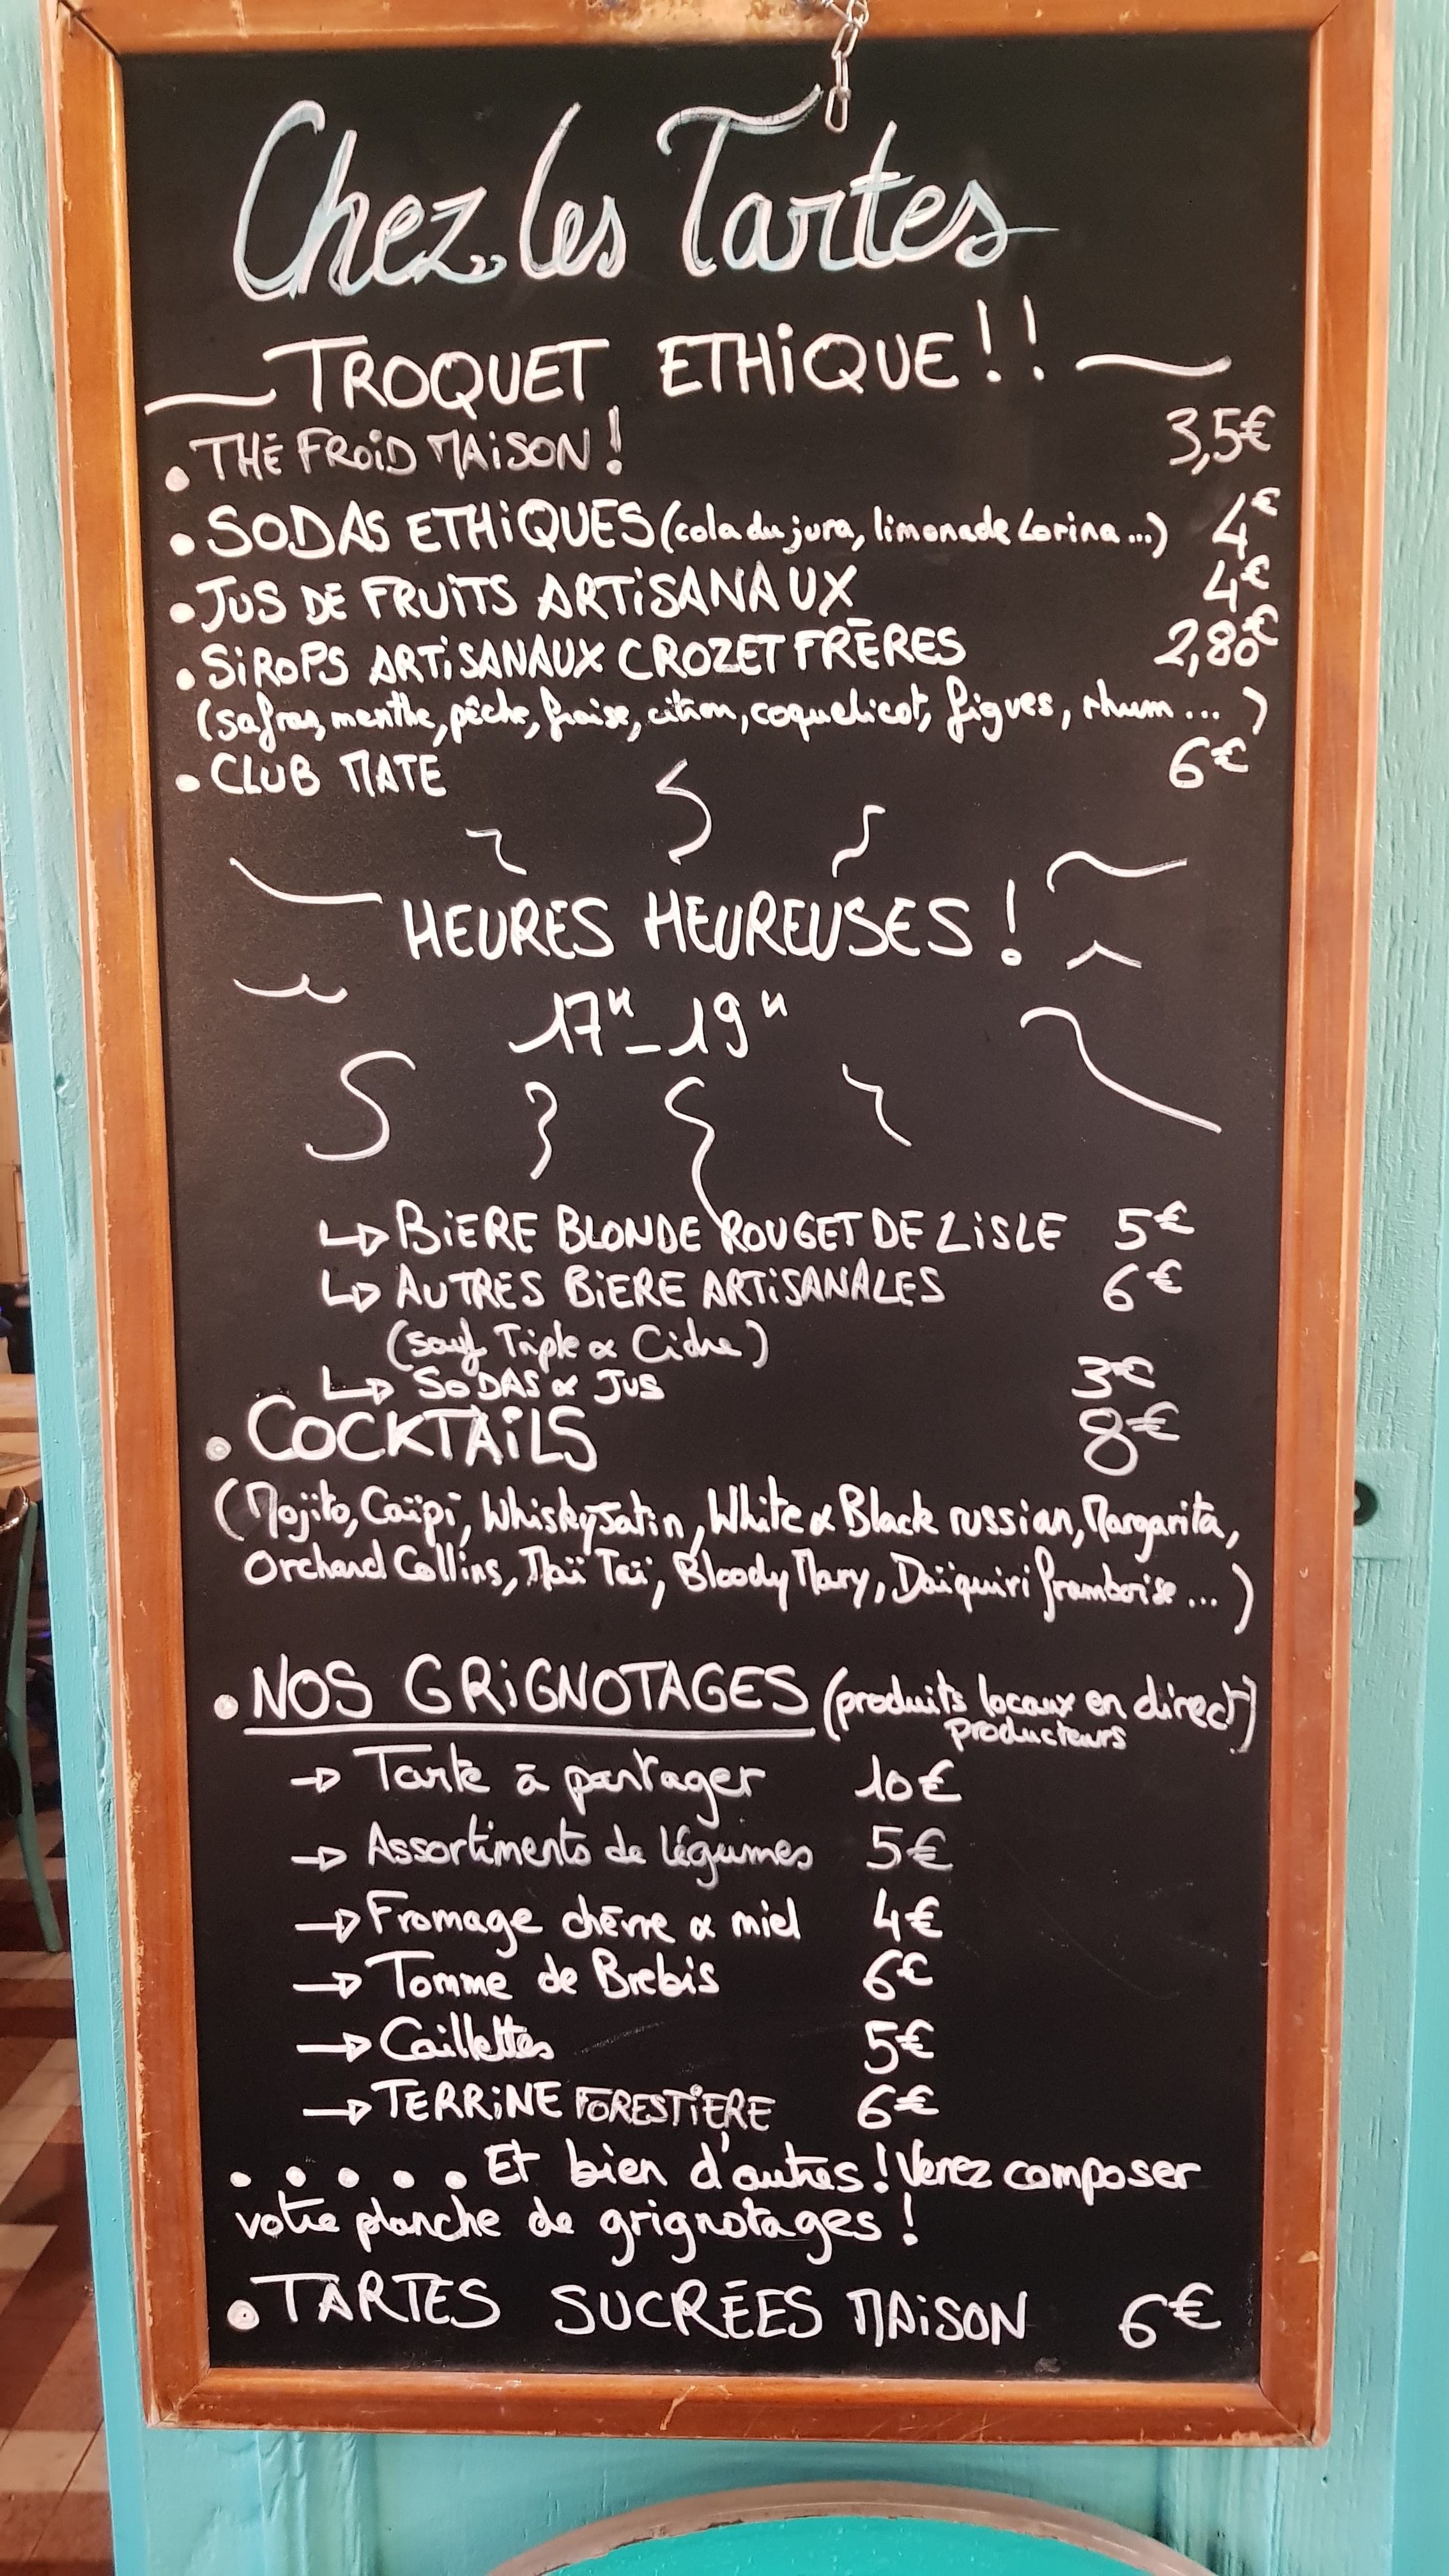 Chez les Tartes
TROQUET ETHIQUE!!
• THÉ FROID MAISON! 3,5€
• SODAS ETHIQUES (cola du jura, limonade Lorina...) 4€
• JUS DE FRUITS ARTISANAUX 4€
• SIROPS ARTISANAUX CROZET FRÈRES 2,80€
(safran, menthe, pêche, fraise, citron, coquelicot, figues, rhum...)
• CLUB MATE 6€
HEURES HEUREUSES!
17H_19H
↳ BIERE BLONDE ROUGET DE LISLE 5€
↳ AUTRES BIERE ARTISANALES 6€
(sauf Triple & Cidre)
↳ SODAS & JUS 3€
• COCKTAILS 8€
(Mojito, Caïpi, Whisky Satin, White & Black russian, Margarita,
Orchard Collins, Maï Taï, Bloody Mary, Daïquiri framboise...)
• NOS GRIGNOTAGES (produits locaux en direct)
producteurs
→ Tarte à partager 10€
→ Assortiments de légumes 5€
→ Fromage chèvre & miel 4€
→ Tomme de Brebis 6€
→ Caillettes 5€
→ TERRINE FORESTIERE 6€
..... Et bien d'autres! Venez composer
votre planche de grignotages!
• TARTES SUCRÉES MAISON 6€